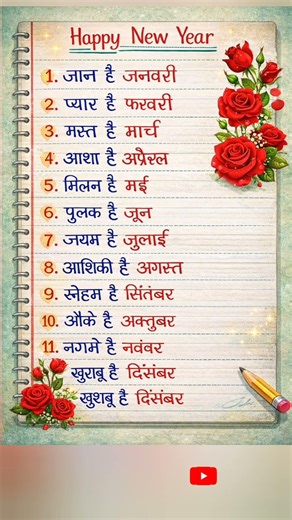 Happy New Year
1. जान है जनवरी
2. प्यार है फरवरी
3. मस्त है मार्च
4. आशा है अप्रैरल
5. मिलन है मई
6. पुलक है जून
7. जयम है जुलाई
8. आशिकी है अगस्त
9. स्नेहम है सिंतंबर
10. औंके है अक्तुबर
11. नगमे है नवंवर
खुराबू है दिंसंबर
खुशबू है दिंसंबर